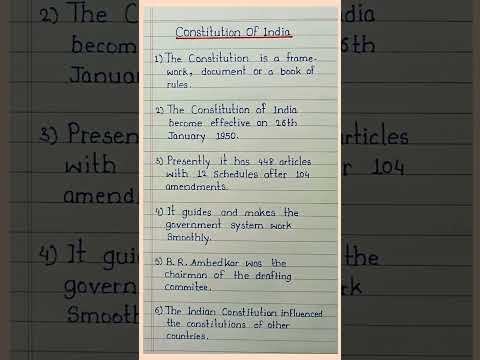 Constitution Of India
1) The Constitution is a frame-
work, document or a book of
rules.
2) The Constitution of India
become effective on 26th
January 1950.
3) Presently it has 448 articles
with 12 Schedules after 104
amendments.
4) It guides and makes the
government system work
Smoothly.
5) B.R. Ambedkar was the
chairman of the drafting
commitee.
6) The Indian Constitution influenced
the constitutions of other
countries.
2) The
become
January
3) Presen
with
amendm
4) It guid
governm
Smoothl
ia
6th
articles
104
he
rk